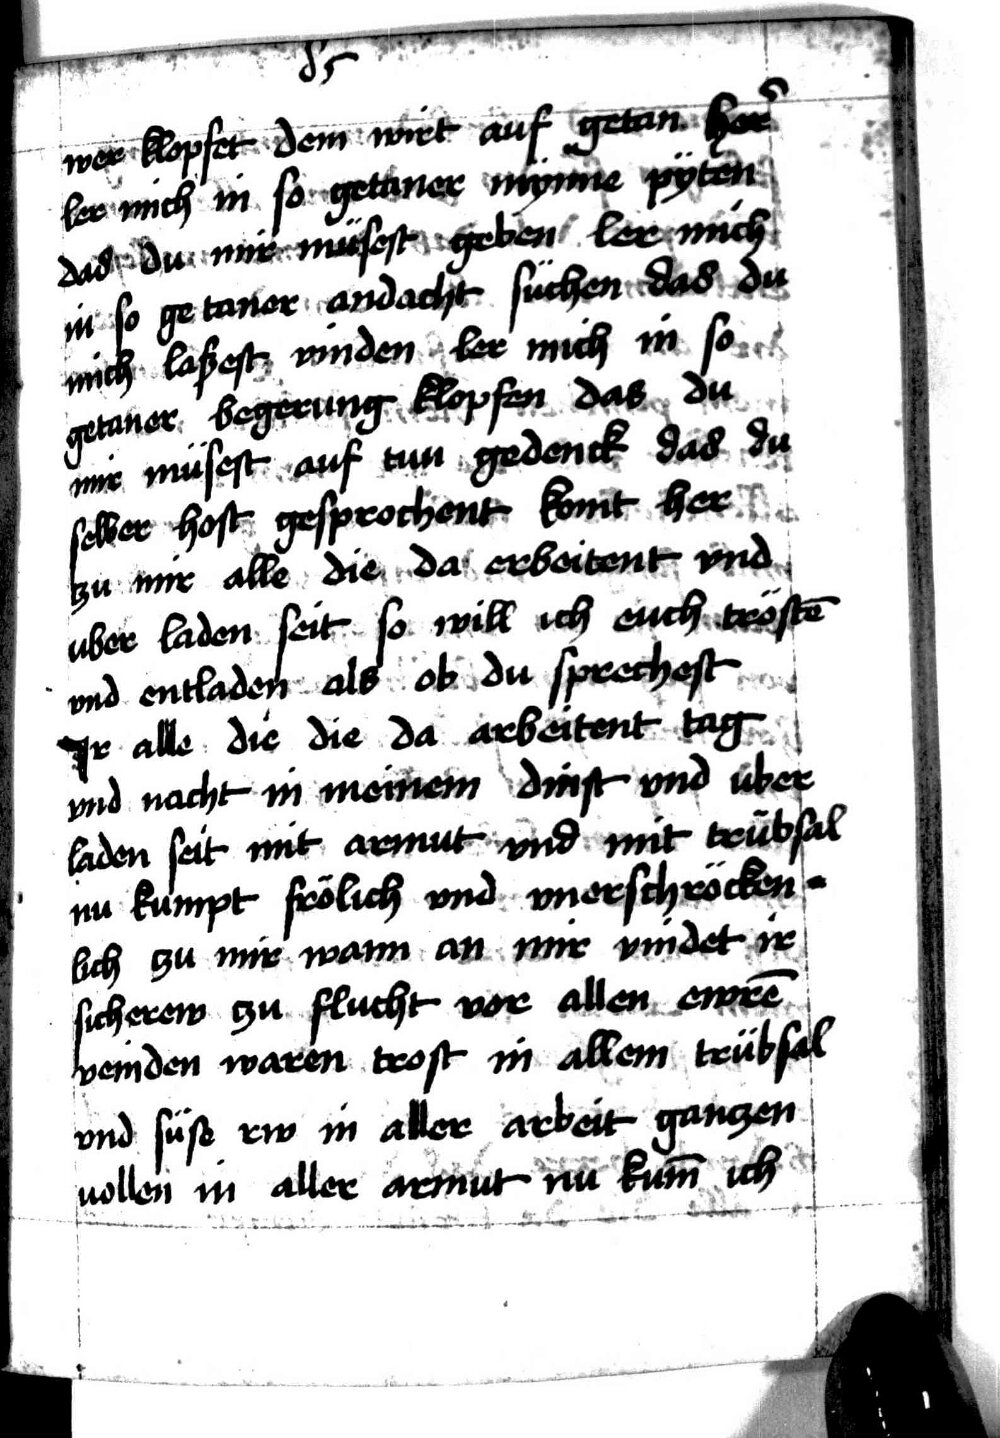 85
wer klopfet dem wirt auf getan her
ler mich in so getaner mynne pÿten
das du mir müsest geben ler mich
in so getaner andacht süchen das du
mich laßest vinden ler mich in so
getaner begerung klopfen das du
mir müsest auf tun gedenck das du
selber host gesprochent komt her
zu mir alle die da erbeitent vnd
uber laden seit so will ich euch tröstē
vnd entladen als ob du sprechest
Ir alle die die da arbeitent tag
vnd nacht in meinem dinst vnd uber
laden seit mit armut vnd mit trübsal
nu kumpt frölich vnd vnerschröcken-
lich zu mir wann an mir vindet ir
sicherew zu flucht vor allen ewrē
veinden waren trost in allem trübsal
vnd süse rw in aller arbeit gantzen
vollen in aller armut nu kum̄ ich